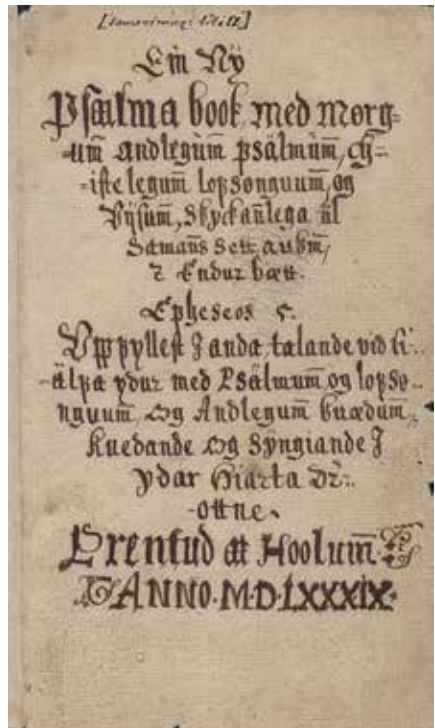 Ein Ný
Psalma book, med morg-
-um̅ Andlegum̅ psälmum̅, cÿ-
-iste legum̅ lofsonguum̅, og
Vÿsum, Skyckan̅lega til
Saman̅s Sett, aukin̅,
Endur bætt.
Epheseos 5.
Vppfyllest J anda, talande vid Si..
-älfa ydur med Psälmum̅ og lofso-
nguum̅, Og Andlegum̅ kuædum̅,
Kuedande Og Sÿngiande J
ydar Hiarta Dr..
-ottne.
Prentud at Hoolum̅
ANNO. M.D.LXXXIX.